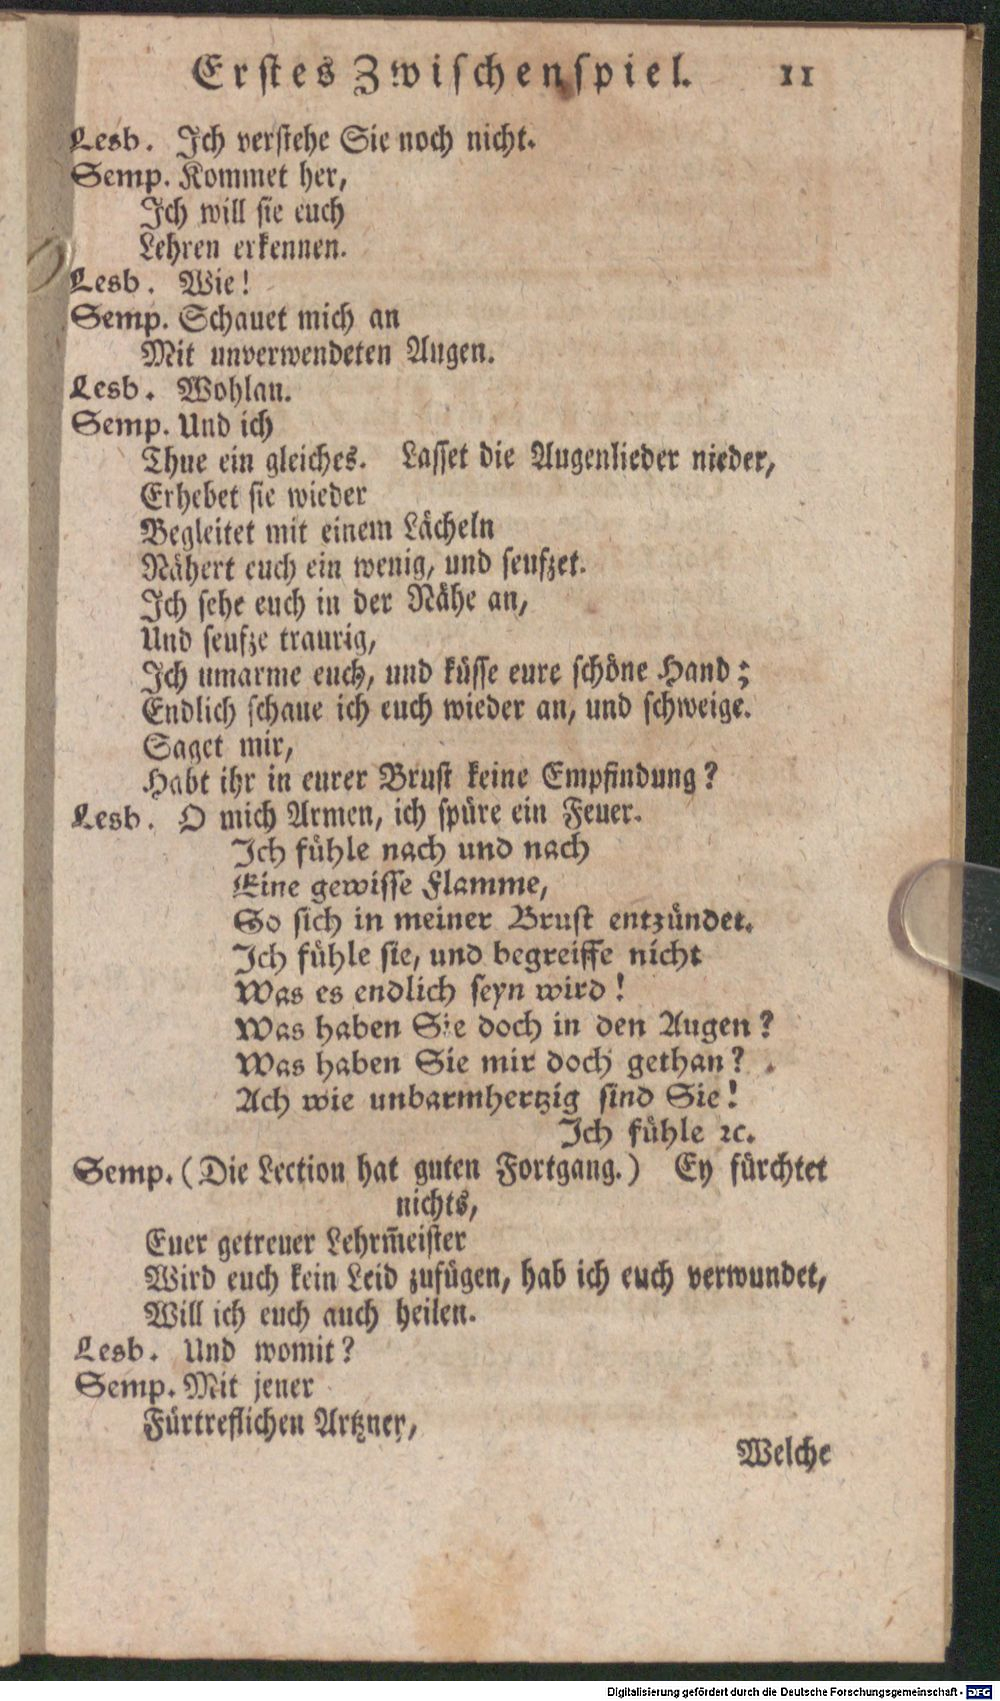 Erstes Zwischenspiel. 11
Lesb. Ich verstehe Sie noch nicht.
Semp. Kommet her,
Ich will sie euch
Lehren erkennen.
Lesb. Wie!
Semp. Schauet mich an
Mit unverwendeten Augen.
Lesb. Wohlan.
Semp. Und ich
Thue ein gleiches. Lasset die Augenlieder nieder,
Erhebet sie wieder
Begleitet mit einem Lächeln
Nähert euch ein wenig, und seufzet.
Ich sehe euch in der Nähe an,
Und seufze traurig,
Ich umarme euch, und küsse eure schöne Hand;
Endlich schaue ich euch wieder an, und schweige.
Saget mir,
Habt ihr in eurer Brust keine Empfindung?
Lesb. O mich Armen, ich spüre ein Feuer.
Ich fühle nach und nach
Eine gewisse Flamme,
So sich in meiner Brust entzündet.
Ich fühle sie, und begreiffe nicht
Was es endlich seyn wird!
Was haben Sie doch in den Augen?
Was haben Sie mir doch gethan?
Ach wie unbarmhertzig sind Sie!
Ich fühle ꝛc.
Semp. (Die Lection hat guten Fortgang.) Ey fürchtet
nichts,
Euer getreuer Lehrm̄eister
Wird euch kein Leid zufügen, hab ich euch verwundet,
Will ich euch auch heilen.
Lesb. Und womit?
Semp. Mit jener
Fürtreflichen Artzney,
Welche
Digitalisierung gefördert durch die Deutsche Forschungsgemeinschaft - DFG